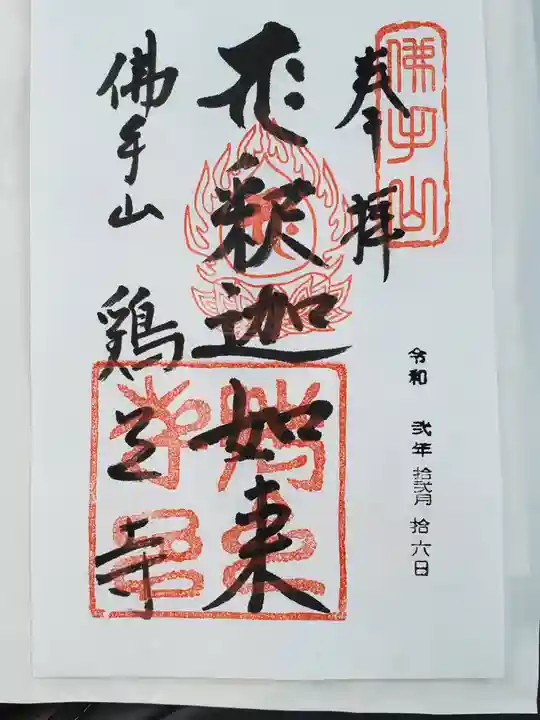 佛手山
奉拝
令和 弐年 拾弐月 拾六日
釈迦如来
佛手山 鶏足寺
鶏足寺印